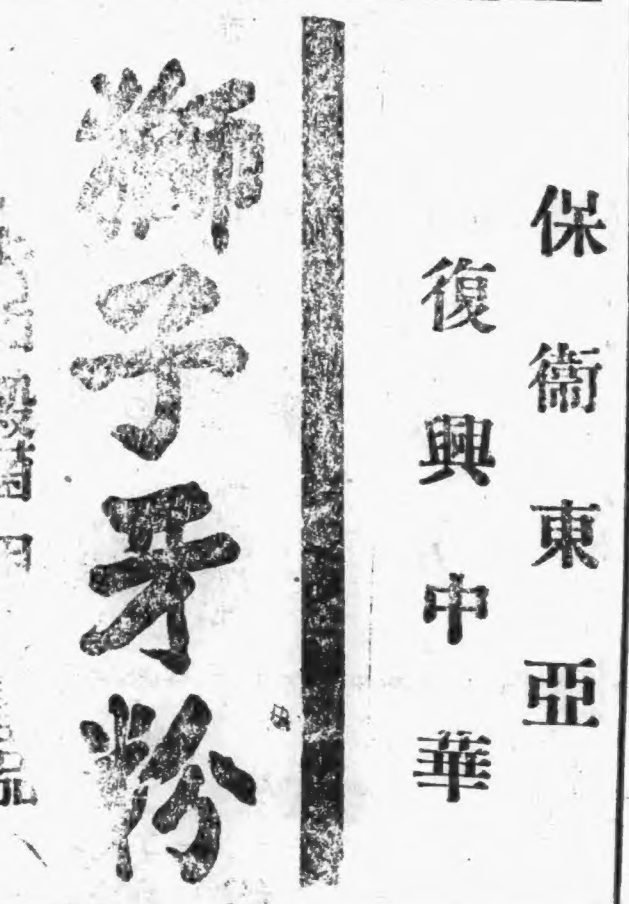 保衞東亞
復興中華
獅子牙粉